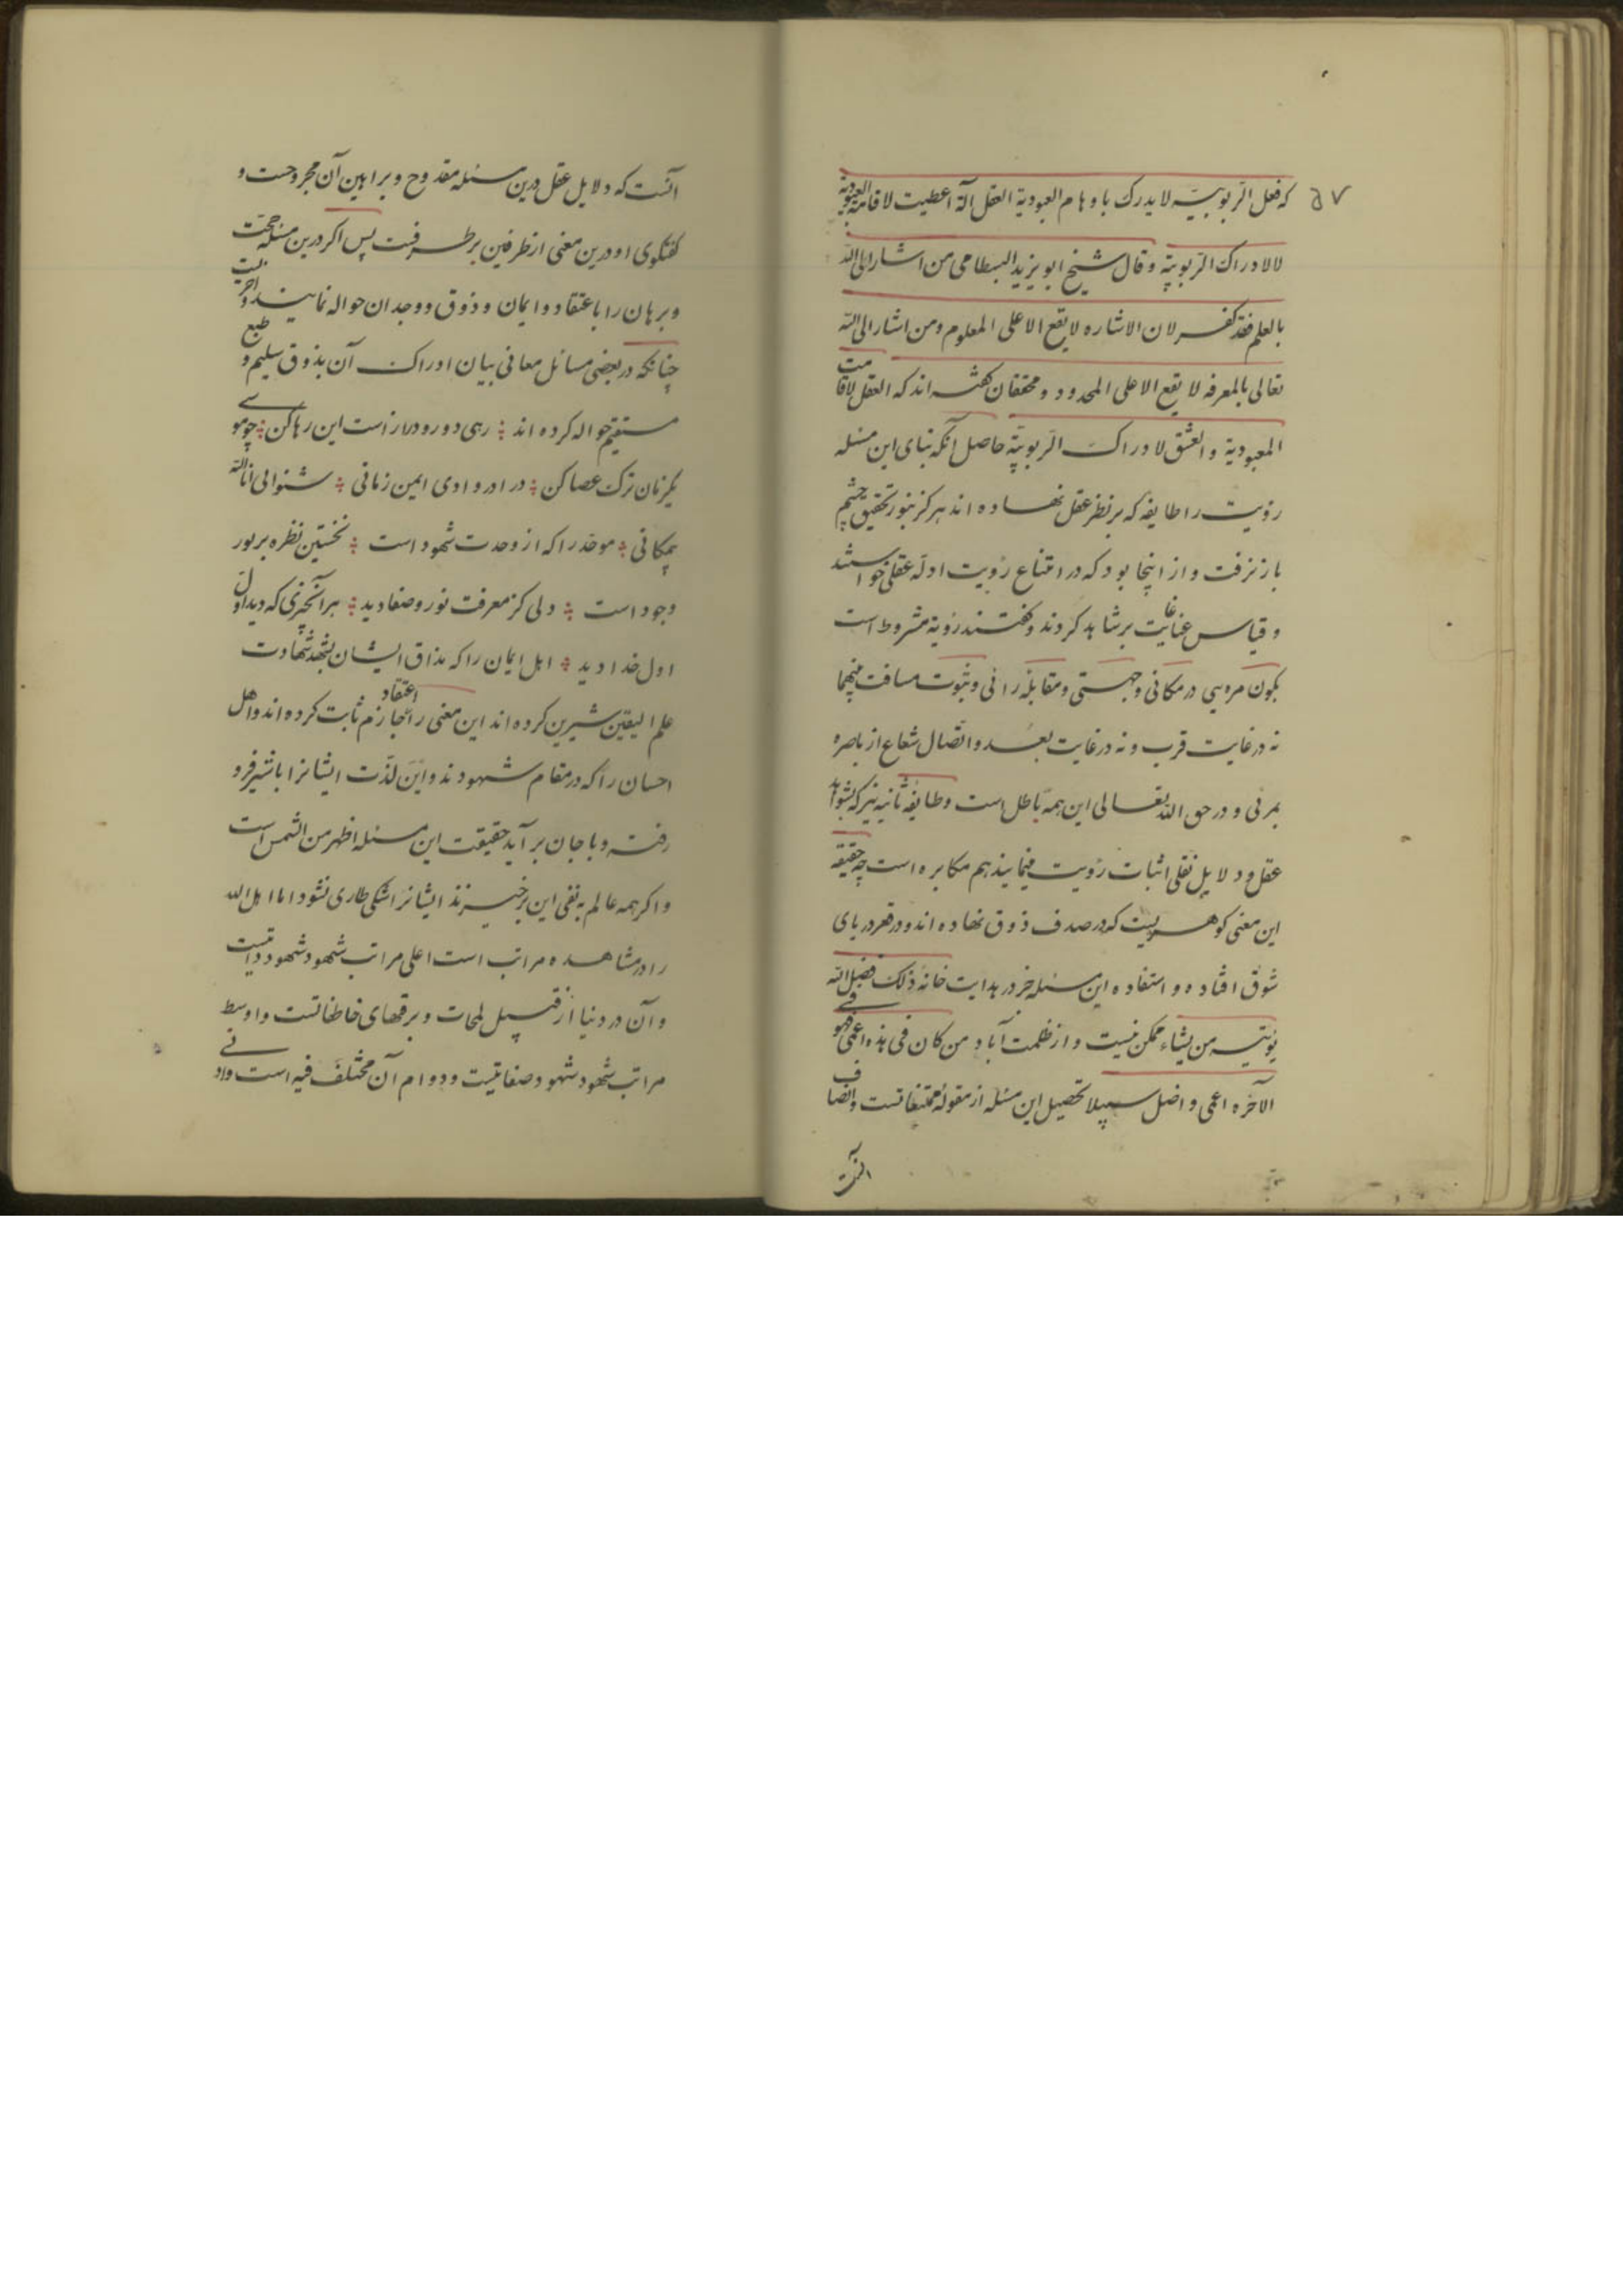 ۵۷
که فعل الربوبیة لا یدرک باوهام العبودیة العقل آلة اعطیت لاقامة العبودیة
لا لادراک الربوبیة وقال شیخ ابو یزید البسطامی من اشار الی الله
بالعلم فقد کفر لان الاشاره لا یقع الا علی المعلوم ومن اشار الی الله
تعالی بالمعرفه لا یقع الا علی المحدود و محققان گفته اند که العقل لاقامت
العبودیة والعشق لادراک الربوبیّة حاصل آنکه بنای این مسئله
رؤیت را طایفه که بر نظر عقل نهاده اند هرگز بنور تحقیق چشم
باز نرفت و از اینجا بود که در امتناع رؤیت ادلّه عقلی خواستند
و قیاس غایت بر شاهد کردند و گفتند رؤیة مشروط است
بکون مرءیی در مکانی و جهتی و مقابلهٔ رائی و ثبوت مسافت بینهما
نه در غایت قرب و نه در غایت بعد و اتّصال شعاع از باصره
بمرئی و در حق الله تعالی این همه باطل است و طایفهٔ ثانیه نیز که بشواهد
عقل و دلایل نقلی اثبات رؤیت مینمایند هم مکابره است چه حقیقه
این معنی گوهریست که در صدف ذوق نهاده اند و در قعر دریای
شوق افتاده و استفاده این مسئله جز در هدایت خانهٔ ذلک فضل الله
یؤتیه من یشاء ممکن نیست و از ظلمت آباد من کان فی هذه اعمی فهو فی
الآخره اعمی و اضل سبیلا تحصیل این مسئله از مقولهٔ ممتنعاتست و انصاف
آنست
آنست که دلایل عقل درین مسئله مقدوح و براهین آن مجروحست و
گفتگوی او درین معنی از طرفین بر طرفست پس اگر درین مسئله حجّت
و برهان را باعتقاد و ایمان و ذوق و وجدان حواله نمایند و اجر نیست
چنانکه در بعضی مسائل معانی بیان ادراک آن بذوق سلیم و طبع
مستقیم حواله کرده اند رهی دور و دراز است این رها کن چو موسی
یکزمان ترک عصا کن درا در وادی ایمن زمانی شنو انی انا الله
بیگمانی موحّد را که از وحدت شهود است نخستین نظره بر نور
وجود است دلی کز معرفت نور و صفا دید بر آنچیزی که دید اوّل
اول خدا دید اهل ایمان را که مذاق ایشان بشهد شهادت
علم الیقین شیرین کرده اند این معنی را اعتقاد جازم ثابت کرده اند و اهل
احسان را که در مقام شهودند و این لذّت ایشانرا با شیر فرو
رفته و با جان بر آید حقیقت این مسئله اظهر من الشمس است
و اگر همه عالم به نفی این برخیزند ایشانرا شکی طاری نشود اما اهل الله
را در مشاهده مراتب است اعلی مراتب شهود شهود ذاتیست
و آن در دنیا از قبیل لمحات و برقهای خاطفاتست و اوسط
مراتب شهود شهود صفاتیست و دوام آن مختلف فیه است و ادنی